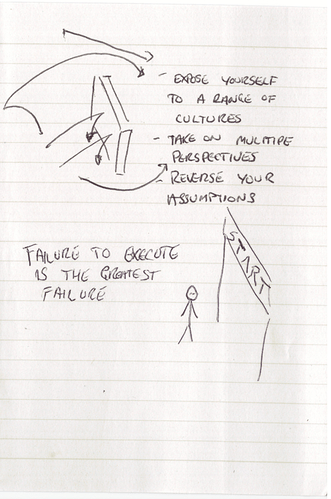 - EXPOSE YOURSELF
TO A RANGE OF
CULTURES
- TAKE ON MULTIPE
PERSPECTIVES
- REVERSE YOUR
ASSUMPTIONS
START
FAILURE TO EXECUTE
IS THE GREATEST
FAILURE